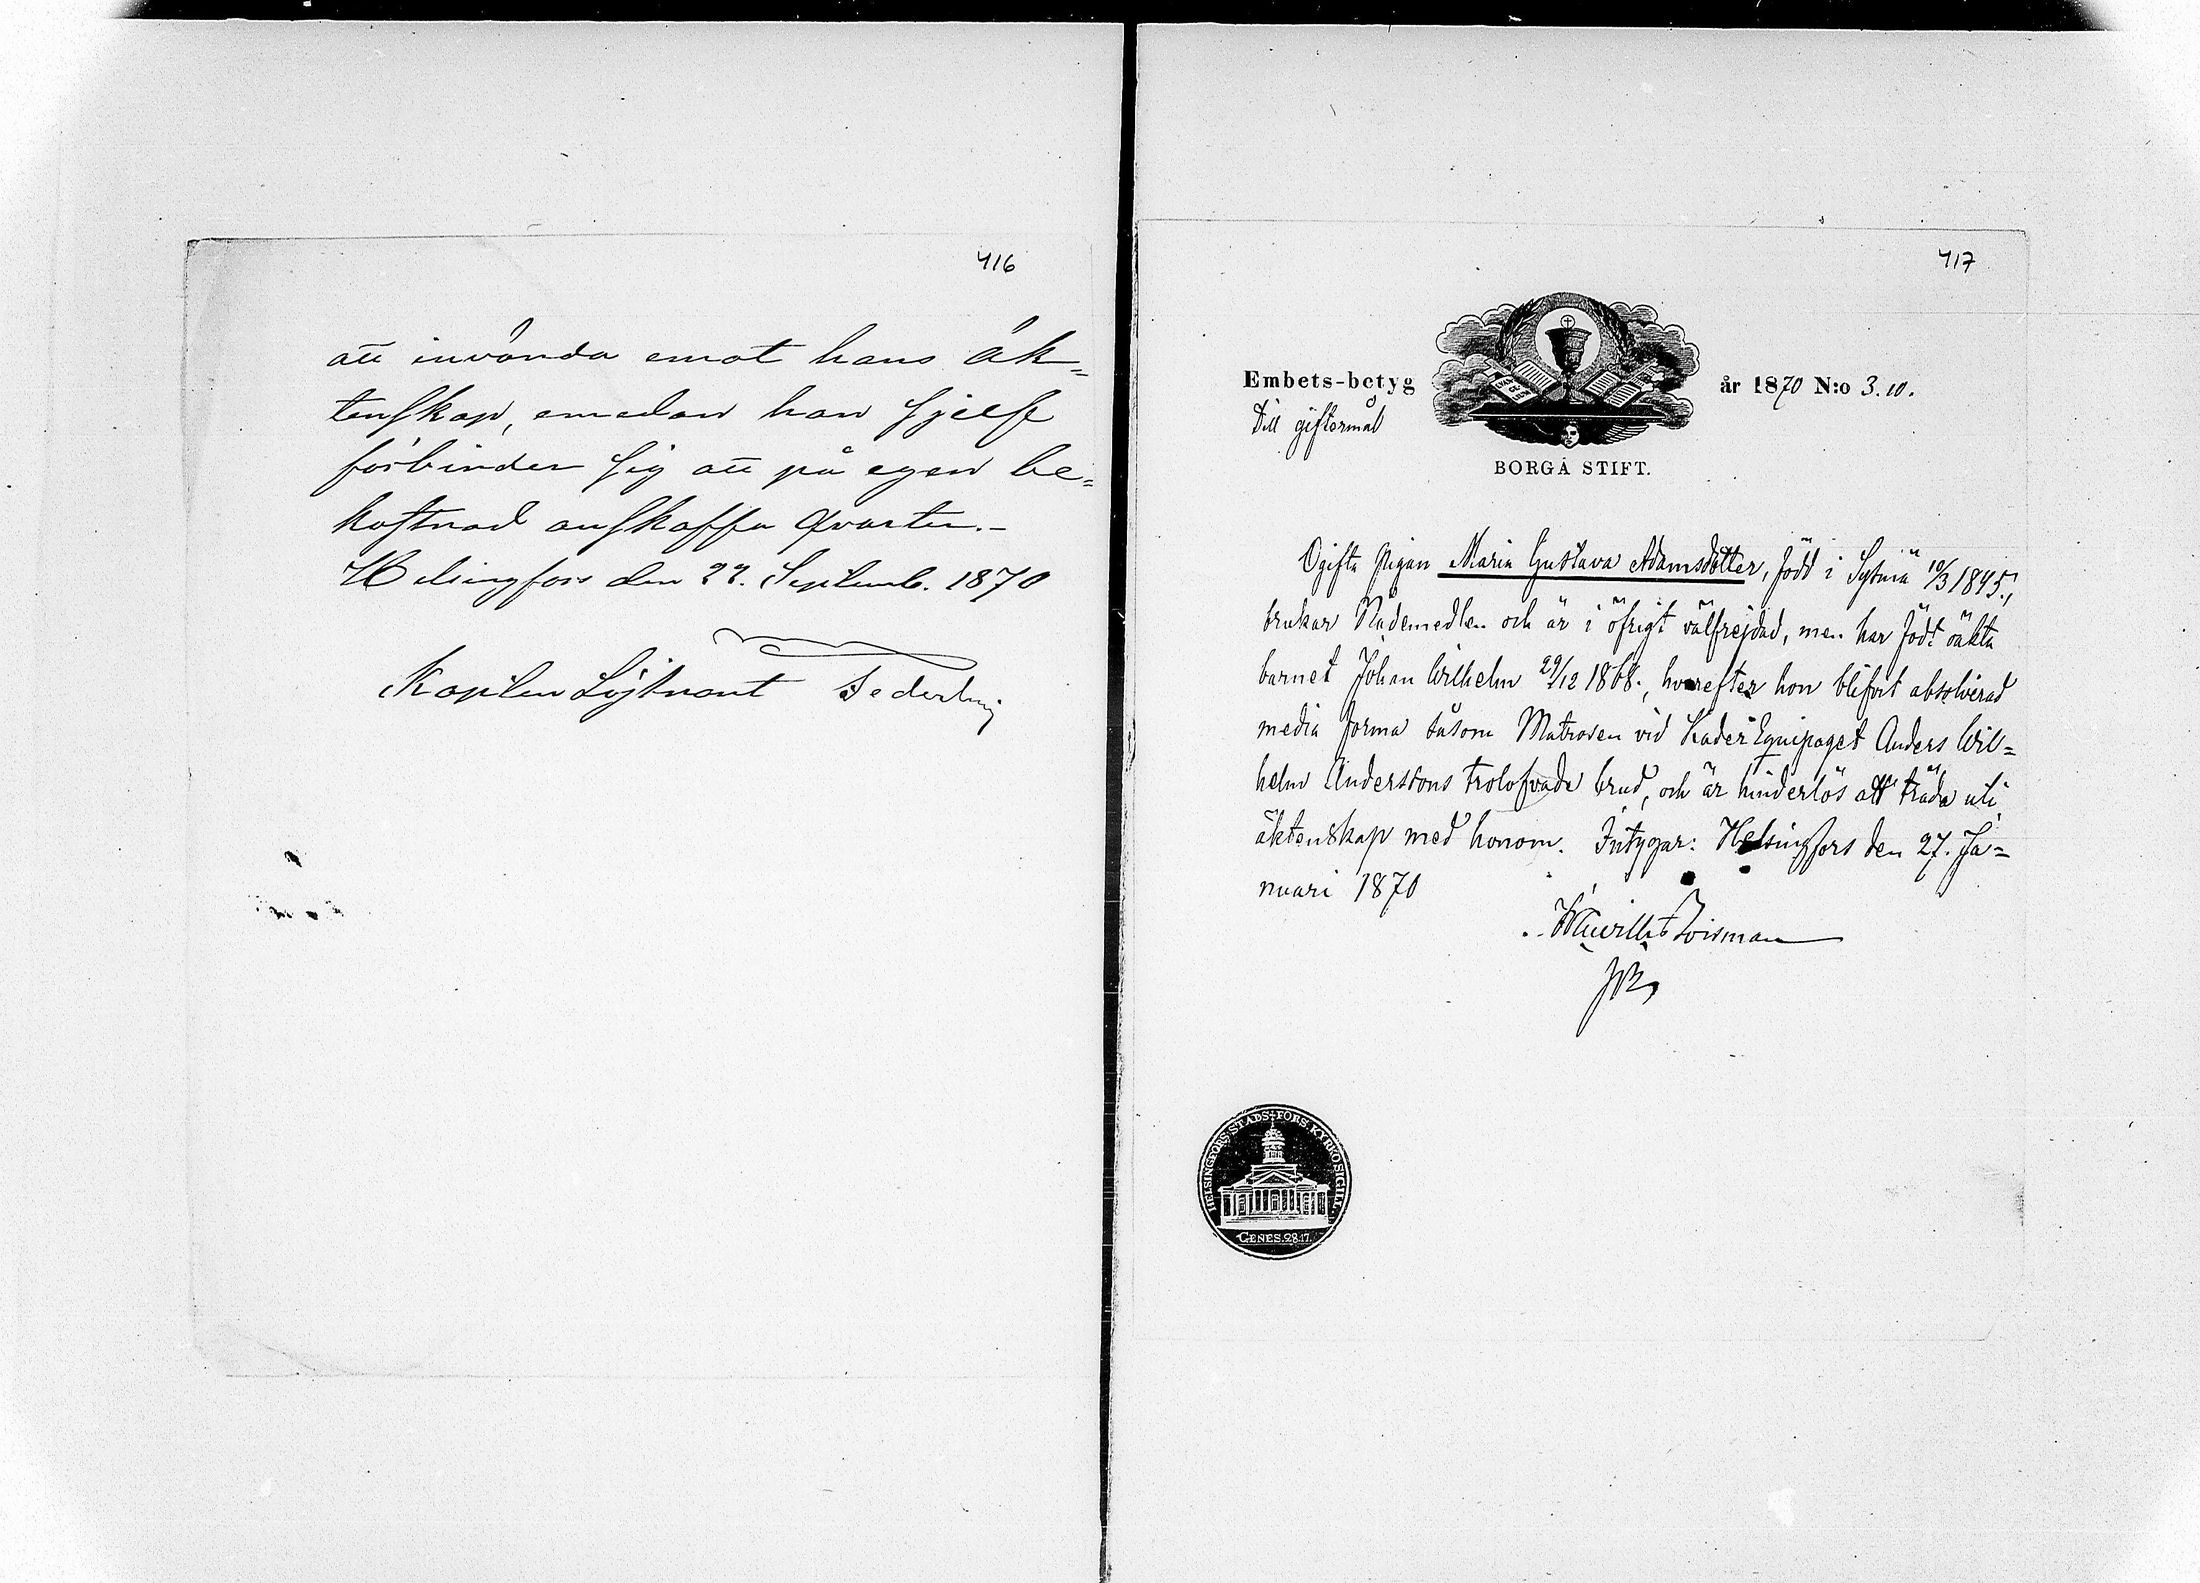 416
att invända emot hans äk=
tenskap, emedan han sjelf
förbinder sig att på egen be=
kostnad anskaffa qvarter.-
Helsingfors den 22. Septemb. 1870
Kapten Löjtnant
417
Embets-betyg
år 1870 N:o 3.10.
Till giftermål
EVAN GE
BORGÅ STIFT.
Ogifta pigan Maria Gustava Adamsdotter, född i Sysmä 10/3 1845.,
brukar Nådemedlen och är i öfrigt välfrejdad, men har födt oäkta
barnet Johan Wilhelm 29/12 1868., hvarefter hon blifvit absolverad
media forma såsom Matrosen vid Kader Equipaget Anders Wil=
helm Anderssons trolofvade brud, och är hinderlös att träda uti
äktenskap med honom. Intygar: Helsingfors den 27. Ja=
nuari 1870
HELSINGFORS STADS FÖRS. KYRKOSIGILL.
GENES.28.17.